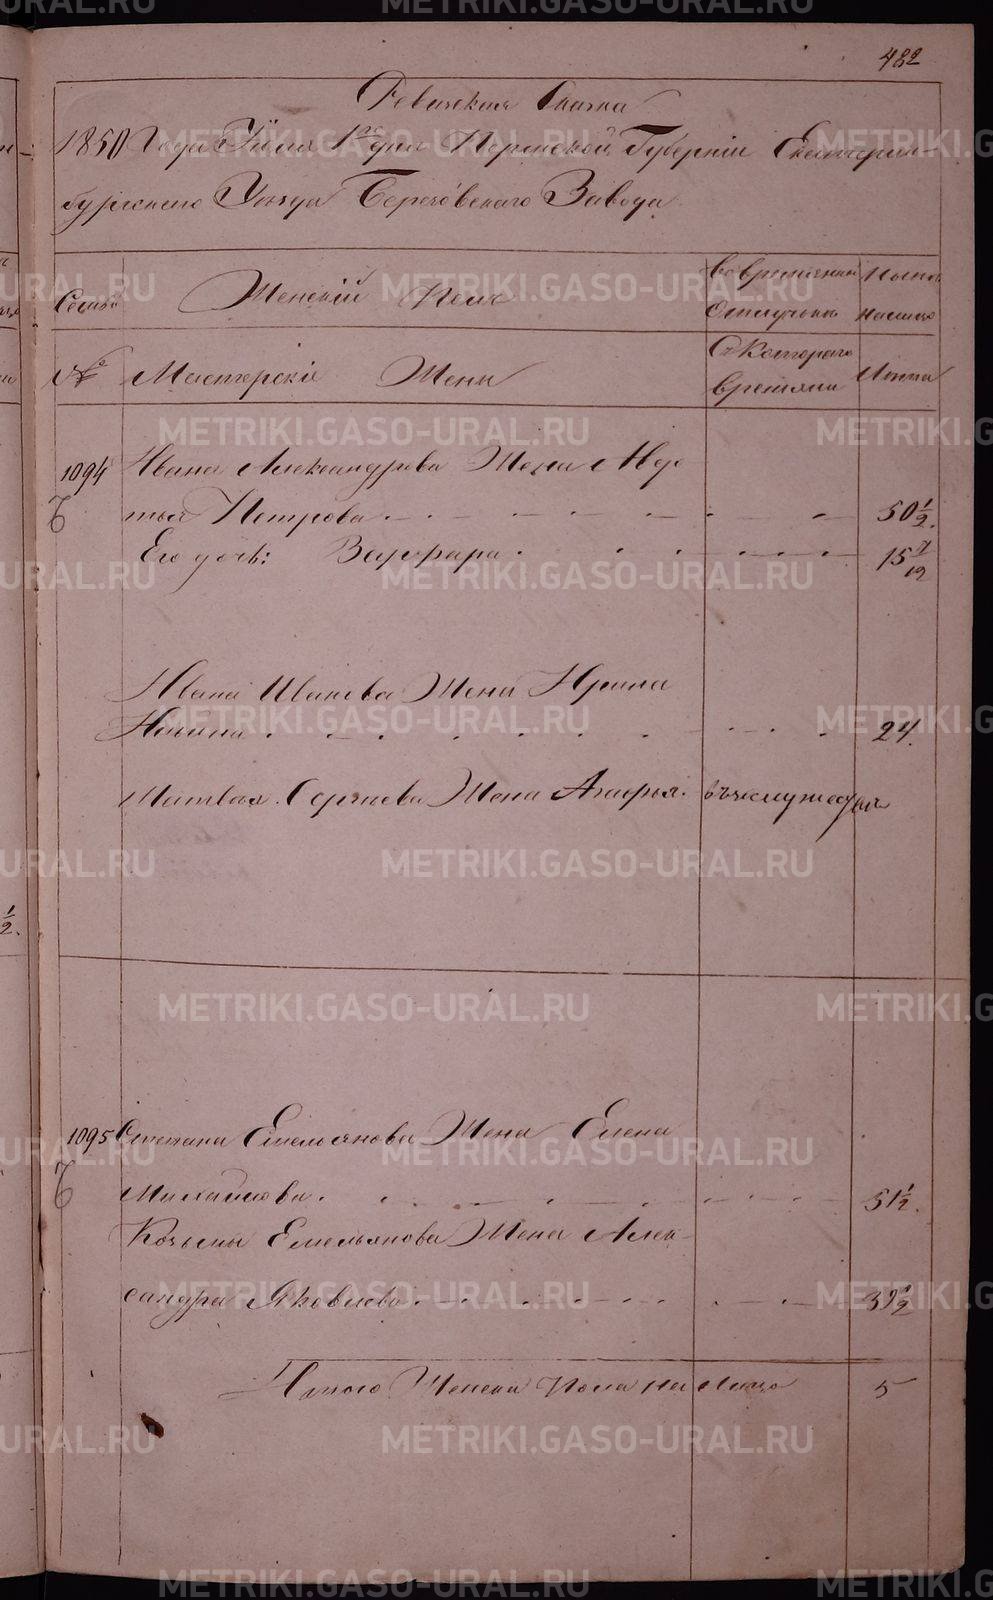 482
Ревизская Сказка
1850 Года Июля 1го дня Пермской Губернiи Екатерин-
бургскаго Уезда Березовскаго Завода
Семьи
Женскiй Полъ
Во Временной отлучкѣ
Ныне на лицо
№
Мастерскiе Жены
Съ Котораго времени
Лета
1094 Ивана Александрова Жена Авдо
тья Петрова 50 1/2.
Его дочь: Варвара 15 7/12
Ивана Иванова Жена Ирина
Ильина 24.
Матвея Сергеева Жена Агафья.
1095 Степана Емельянова Жена Елена
Михайлова. 51 1/2.
Козьмы Емельянова Жена Алек-
сандра Яковлева 39 1/2
Итого Женска Пола на Лицо 5
1/2.
METRIKI.GASO-URAL.RU